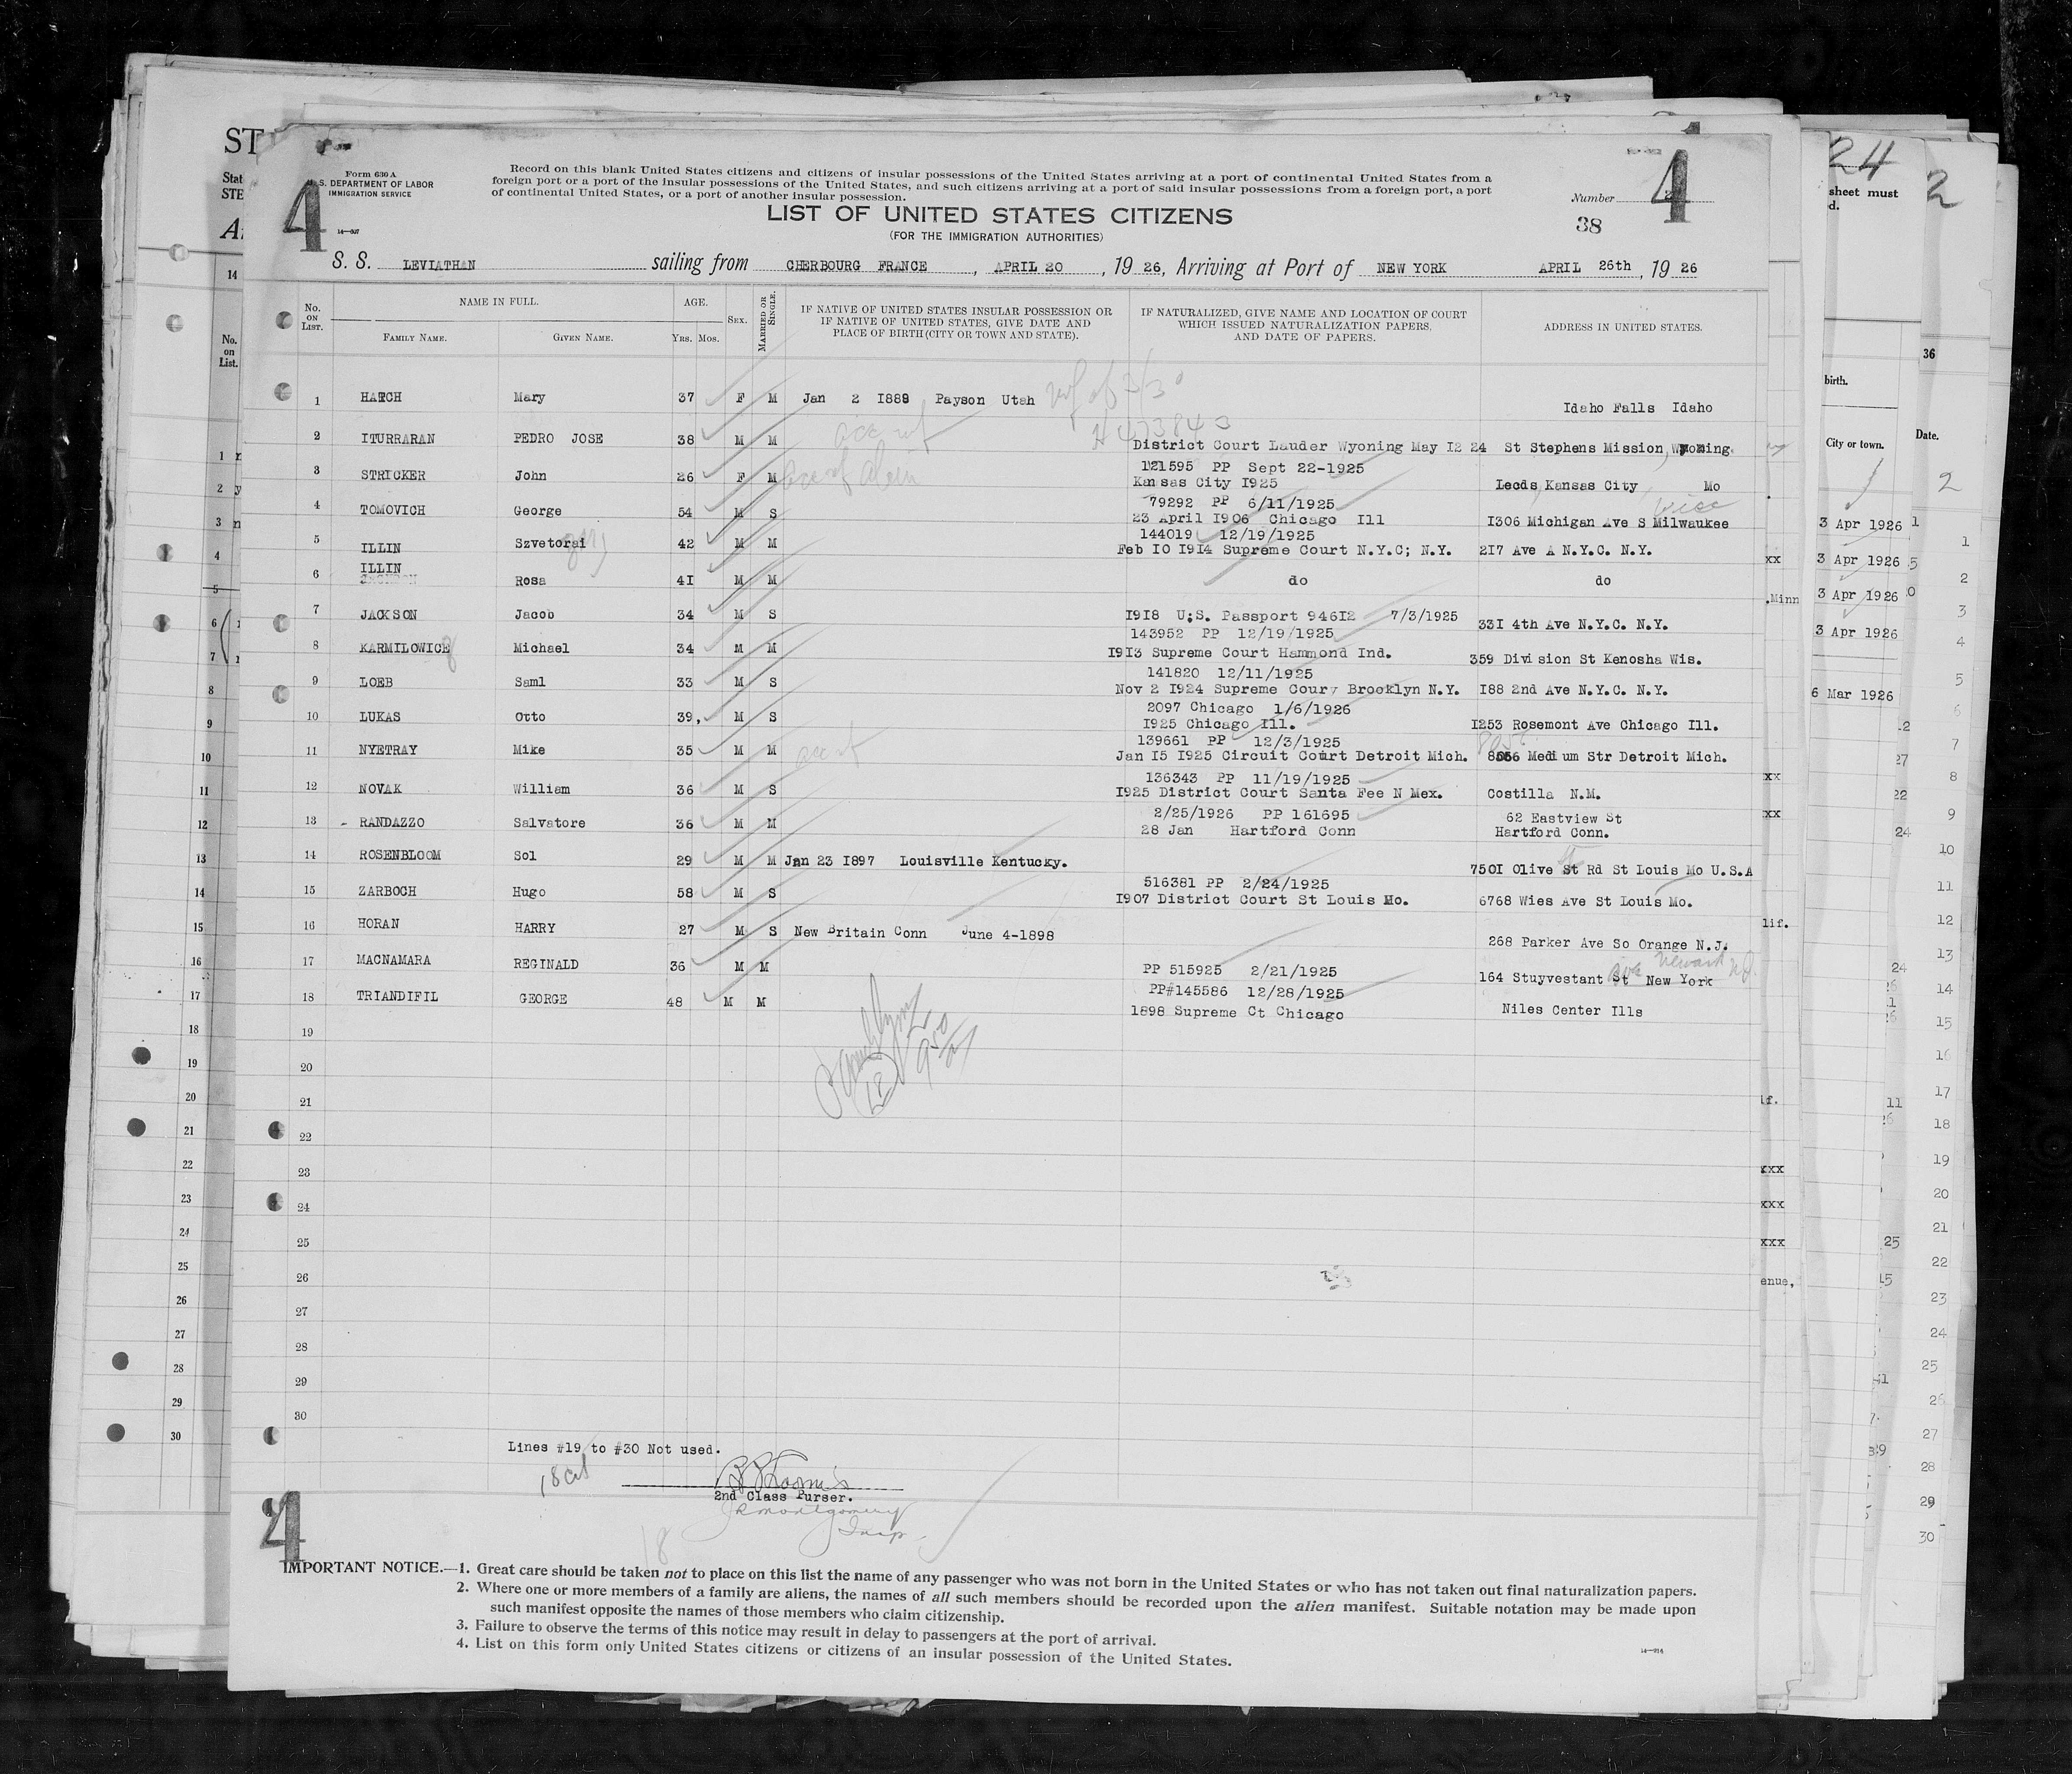 Form 630 A
U. S. DEPARTMENT OF LABOR
IMMIGRATION SERVICE
14—307
4
4
Record on this blank United States citizens and citizens of insular possessions of the United States arriving at a port of continental United States from a
foreign port or a port of the insular possessions of the United States, and such citizens arriving at a port of said insular possessions from a foreign port, a port
of continental United States, or a port of another insular possession.
Number
38
LIST OF UNITED STATES CITIZENS
(FOR THE IMMIGRATION AUTHORITIES)
S. S. LEVIATHAN sailing from CHERBOURG FRANCE, APRIL 20, 19 26, Arriving at Port of NEW YORK APRIL 26th, 19 26
No. ON LIST. NAME IN FULL. AGE. SEX. MARRIED OR SINGLE. IF NATIVE OF UNITED STATES INSULAR POSSESSION OR IF NATIVE OF UNITED STATES, GIVE DATE AND PLACE OF BIRTH (CITY OR TOWN AND STATE). IF NATURALIZED, GIVE NAME AND LOCATION OF COURT WHICH ISSUED NATURALIZATION PAPERS, AND DATE OF PAPERS. ADDRESS IN UNITED STATES.
FAMILY NAME. GIVEN NAME. YRS. MOS.
1 HATCH Mary 37 F M Jan 2 1889 Payson Utah Idaho Falls Idaho
2 ITURRARAN PEDRO JOSE 38 M M District Court Lauder Wyoning May I2 24 St Stephens Mission, Wyoming
121595 PP Sept 22-1925
3 STRICKER John 26 F M Kansas City I925 Leeds Kansas City Mo
79292 PP 6/11/1925
4 TOMOVICH George 54 M S 23 April I906 Chicago Ill I306 Michigan Ave S Milwaukee
144019 12/19/1925
5 ILLIN Szvetorai 42 M M Feb IO I9I4 Supreme Court N.Y.C; N.Y. 2I7 Ave A N.Y.C. N.Y.
6 ILLIN Rosa 4I M M do do
7 JACKSON Jacob 34 M S I9I8 U:S. Passport 946I2 7/3/1925 33I 4th Ave N.Y.C. N.Y.
143952 PP 12/19/1925
8 KARMILOWICE Michael 34 M M I9I3 Supreme Court Hammond Ind. 359 Division St Kenosha Wis.
141820 12/11/1925
9 LOEB Saml 33 M S Nov 2 I924 Supreme Cour Brooklyn N.Y. I88 2nd Ave N.Y.C. N.Y.
2097 Chicago 1/6/1926
10 LUKAS Otto 39, M S I925 Chicago Ill. I253 Rosemont Ave Chicago Ill.
139661 PP 12/3/1925
11 NYETRAY Mike 35 M M Jan I5 I925 Circuit Court Detroit Mich. Medium Str Detroit Mich.
136343 PP 11/19/1925
12 NOVAK William 36 M S I925 District Court Santa Fee N Mex. Costilla N.M.
2/25/1926 PP 161695 62 Eastview St
13 - RANDAZZO Salvatore 36 M M 28 Jan Hartford Conn Hartford Conn.
14 ROSENBLOOM Sol 29 M M Jan 23 I897 Louisville Kentucky. 750I Olive St Rd St Louis Mo U.S.A
516381 PP 2/24/1925
15 ZARBOCH Hugo 58 M S I907 District Court St Louis Mo. 6768 Wies Ave St Louis Mo.
16 HORAN HARRY 27 M S New Britain Conn June 4-1898 268 Parker Ave So Orange N.J.
17 MACNAMARA REGINALD 36 M M PP 515925 2/21/1925 164 Stuyvestant St New York
Newark NJ.
PP#145586 12/28/1925
18 TRIANDIFIL GEORGE 48 M M 1898 Supreme Ct Chicago Niles Center Ills
19
20
21
22
23
24
25
26
27
28
29
30
Lines #19 to #30 Not used.
2nd Class Purser.
JR Montgomery
Insp.
18
4
IMPORTANT NOTICE.—1. Great care should be taken not to place on this list the name of any passenger who was not born in the United States or who has not taken out final naturalization papers.
2. Where one or more members of a family are aliens, the names of all such members should be recorded upon the alien manifest. Suitable notation may be made upon
such manifest opposite the names of those members who claim citizenship.
3. Failure to observe the terms of this notice may result in delay to passengers at the port of arrival.
4. List on this form only United States citizens or citizens of an insular possession of the United States.
14—914
24
2
sheet must
birth.
City or town.
Date.
36
3 Apr 1926
3 Apr 1926
3 Apr 1926
3 Apr 1926
6 Mar 1926